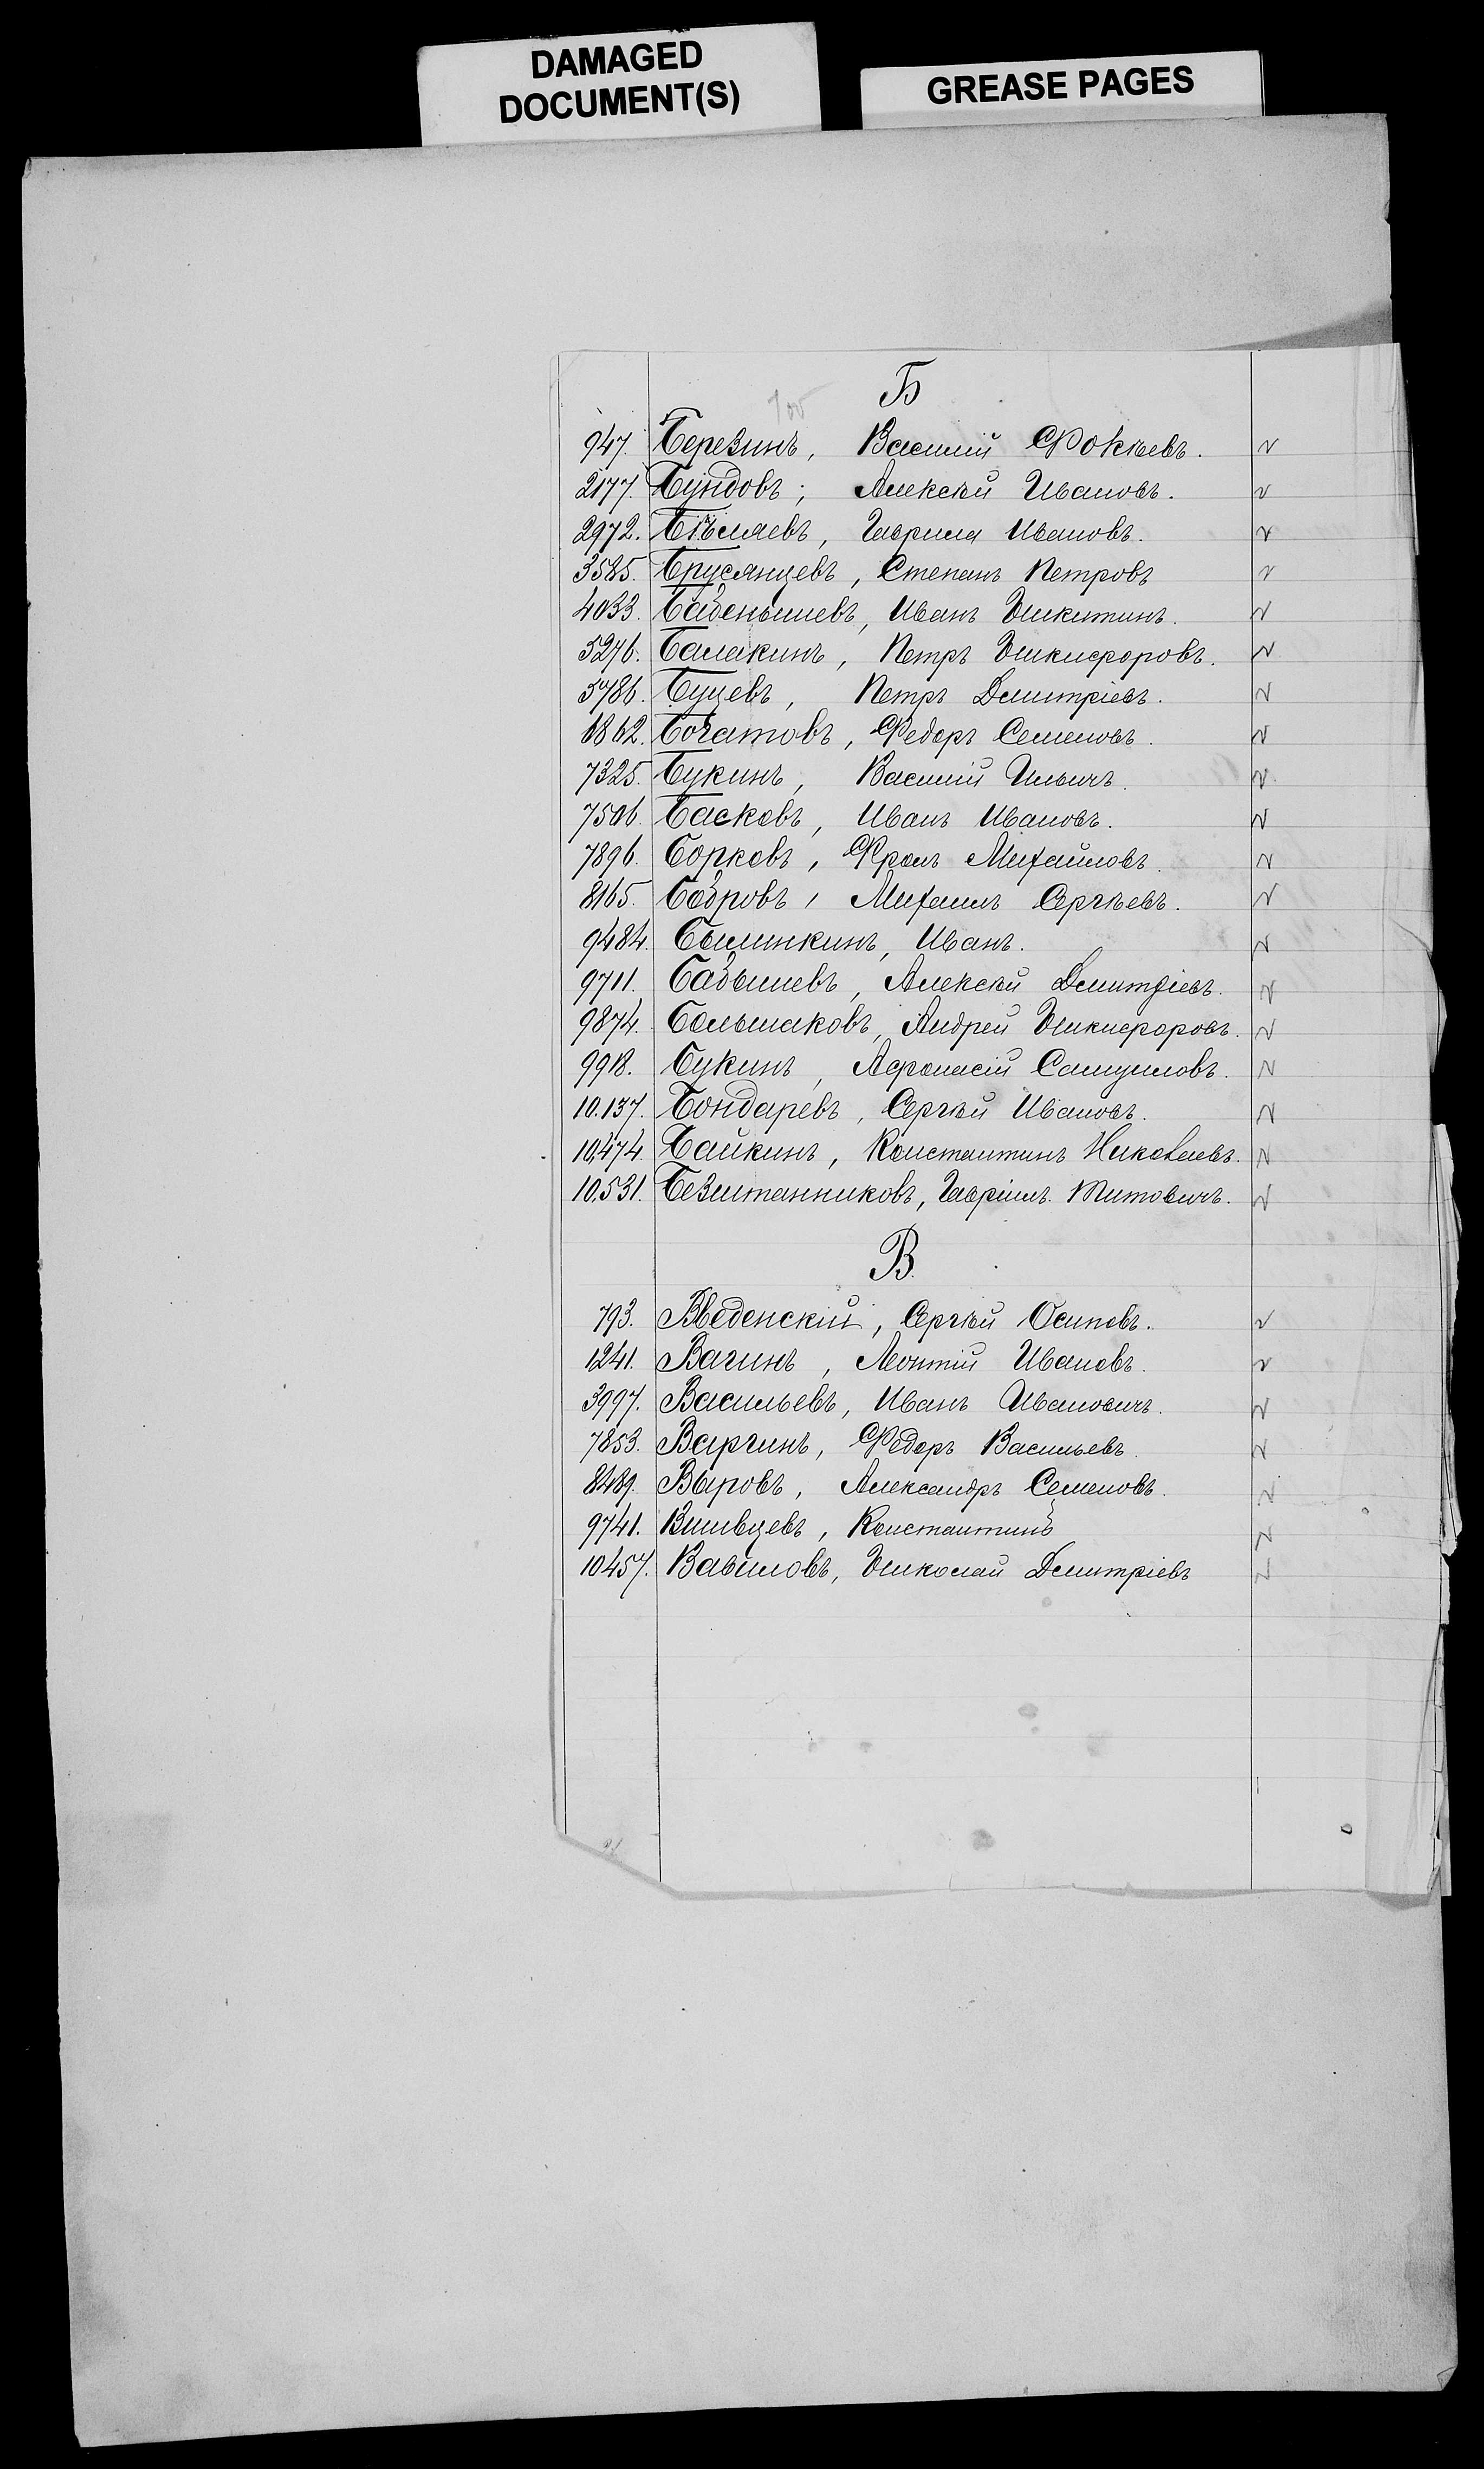 DAMAGED
DOCUMENT(S)
GREASE PAGES
Б
947. Березинъ, Василий Фокѣевъ.
2177. Бундовъ, Алексѣй Ивановъ.
2972. Бѣляевъ, Гаврила Ивановъ.
3525. Брусянцевъ, Степанъ Петровъ
4033. Бабенышевъ, Иванъ Никитинъ.
5276. Балакинъ, Петръ Никифоровъ.
5786. Буцевъ, Петръ Дмитріевъ.
6862. Богатовъ, Федоръ Семеновъ.
7325. Букинъ, Василій Ильичъ.
7506. Басковъ, Иванъ Ивановъ.
7896. Борковъ, Фролъ Михайловъ.
8165. Бобровъ, Михаилъ Сергѣевъ.
9484. Былинкинъ, Иванъ.
9711. Бабышевъ, Алексѣй Дмитріевъ.
9874. Большаковъ, Андрей Никифоровъ.
9918. Букинъ, Афонасій Самуиловъ.
10.137. Бондаревъ, Сергѣй Ивановъ.
10,474. Байкинъ, Константинъ Николаевъ.
10,531. Безштанниковъ, Гавріилъ Титовичъ.
В.
793. Введенскій, Сергѣй Осиповъ.
1241. Вагинъ, Леонтій Ивановъ.
3997. Васильевъ, Иванъ Ивановичъ.
7853. Варгинъ, Федоръ Васильевъ.
8489. Выровъ, Александръ Семеновъ.
9741. Константинъ
10457. Вавиловъ, Николай Дмитріевъ